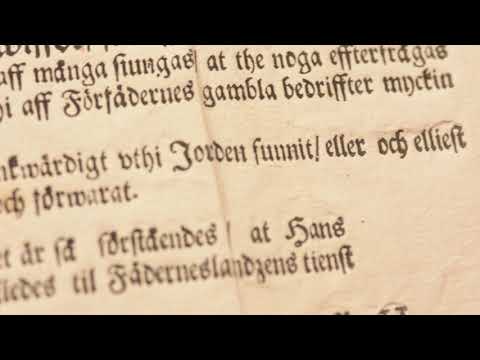 aff många siungas at the noga effterfrågas
hi aff Förfädernes gambla bedriffter myckin
nkwärdigt vthi Jorden funnit/ eller och elliest
och förwarat.
et är så förståendes/ at Hans
lledes til Fäderneslandzens tienst